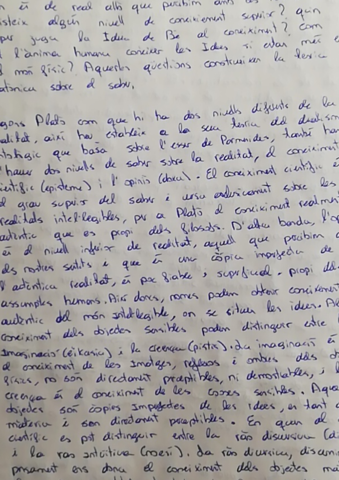 és de real allò que percibim amb els
existeix algún nivell de coneixement superior? quin
per juga la Idea de Bé al coneixement? com
l'ànima humana coneixer les Idees si estan més e
món físic? Aquestes qüestions construeixen la teoria
atònica sobre el saber.
Plató com que hi ha dos nivells difents de la
ealitat, així ho estableix a la seva teoria del dualisme
ntològic que basa sobre l'esser de Parmenides, també hau
d'haver dos nivells de saber sobre la realitat, el coneiximent
científic (episteme) i l'opinió (doxa). El coneixement científic és
el grau superior del saber i versa unicament sobre les
realitats intel·ligibles, per a Plató el coneiximent realment
autèntic que es propi dels filosofs. D'altra banda, l'op
és el nivell inferior de realitat, aquell que percibim a
dels nostres sentits i que és una còpia imperfecta de
l'autèntica realitat, és poc fiable, superficial, propi de
assumptes humans. Així doncs, només podem obtenir coneiximent
autèntic del món intel·ligible, on se situen les idees. Al
coneiximent dels objectes sensibles podem distingir entre l
imaginació (eikasia) i la creença (pistis). La imaginació és
el coneiximent de les imatges, reflexos i ombres dels ob
físics, no són directament perceptibles, ni demostrables, i la
creença és el coneiximent de les coses sensibles. Aques
objectes són còpies imperfectes de les idees, en tant q
matèria i són directament perceptibles. En quan al
científic es pot distinguir entre la raó discursiva (di
i la raó intuitiva (noesi). La raó discursiva, discurs
coneiximent dels objectes ma